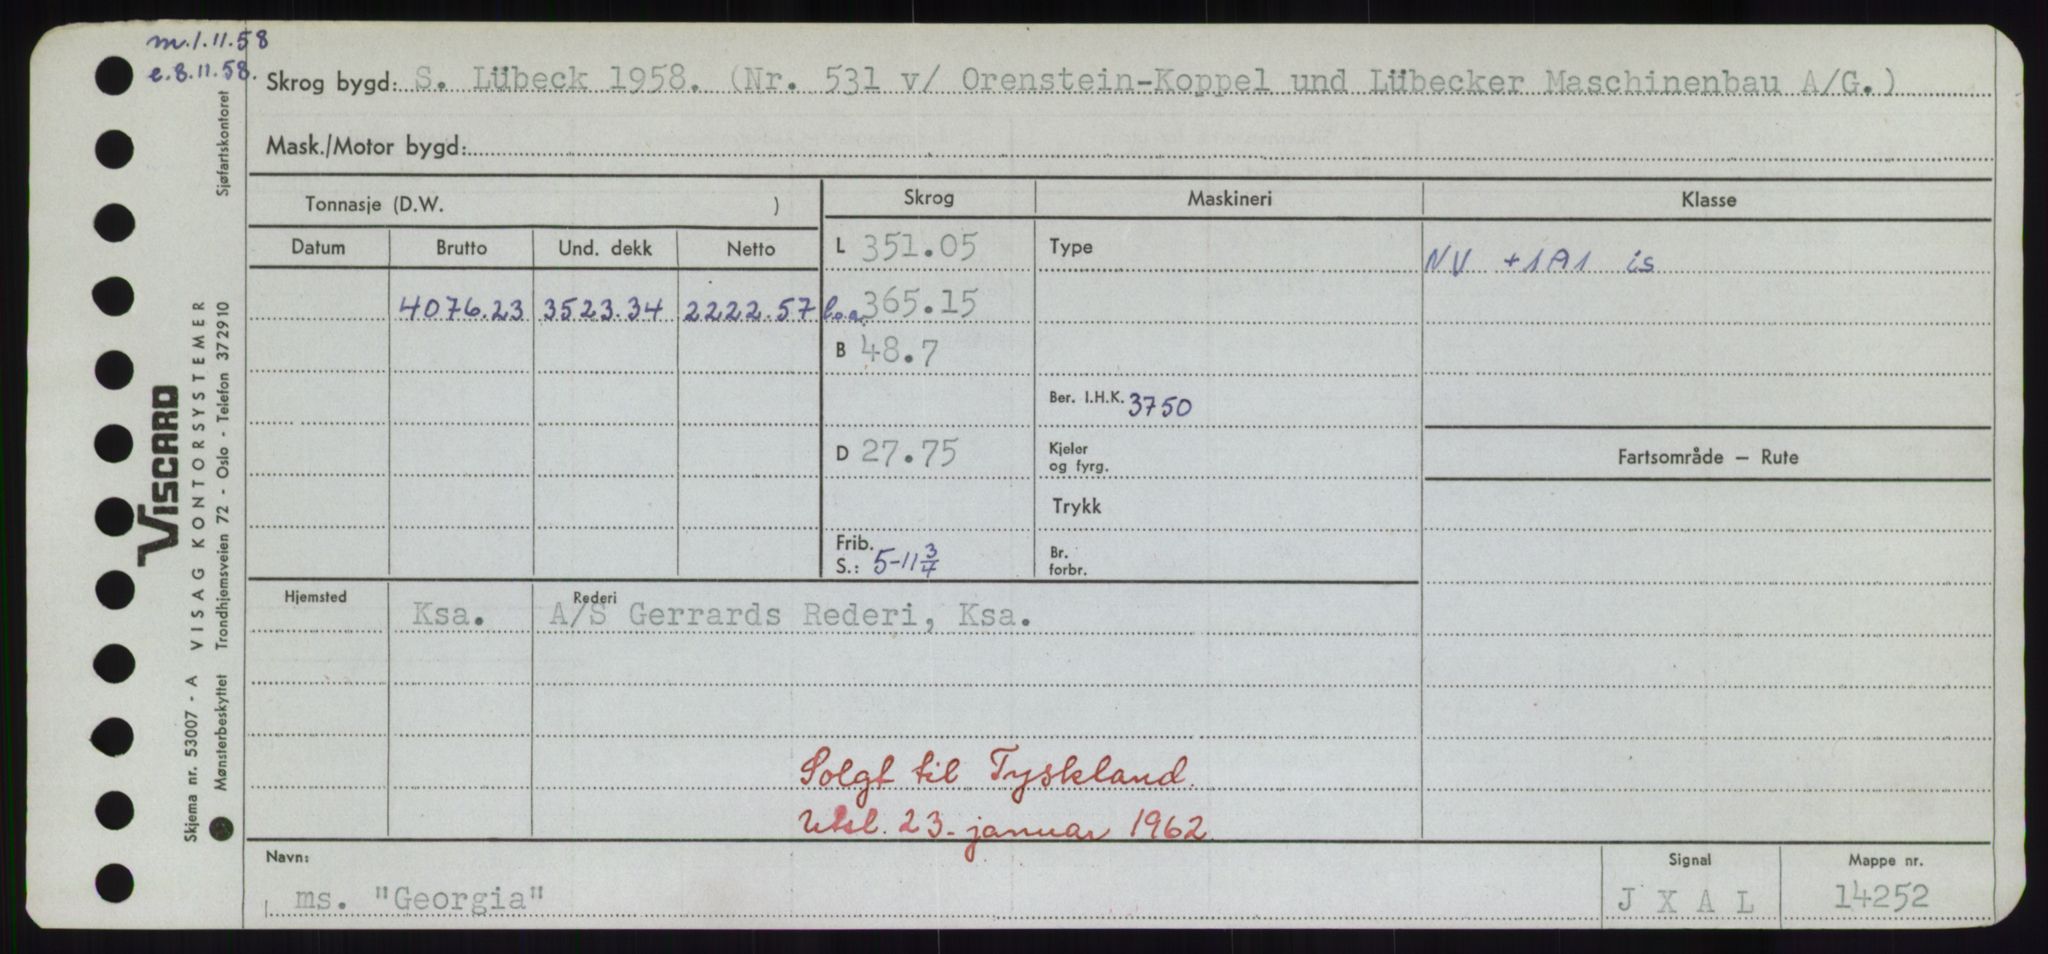 m. 1.11.58
e. 8.11.58.
Skrog bygd: S. Lübeck 1958. (Nr. 531 v/ Orenstein-Koppel und Lübecker Maschinenbau A/G.)
Mask./Motor bygd:
Tonnasje (D.W. )
Skrog Maskineri Klasse
Datum Brutto Und. dekk Netto
L 351.05 Type NV +1A1 is
4076.23 3523.34 2222.57 l.o.a. 365.15
B 48.7
Ber. I.H.K. 3750
D 27.75 Kjeler og fyrg.
Fartsområde — Rute
Trykk
Frib. S.: 5-11 3/4
Br. forbr.
Hjemsted Rederi
Ksa. A/S Gerrards Rederi, Ksa.
Solgt til Tyskland.
Utsl. 23. januar 1962
Navn: Signal Mappe nr.
ms. "Georgia" J X A L 14252
VISCARD
Skjema nr. 53007 - A VISAG KONTORSYSTEMER
Mønsterbeskyttet Trondhjemsveien 72 - Oslo - Telefon 372910 Sjøfartskontoret